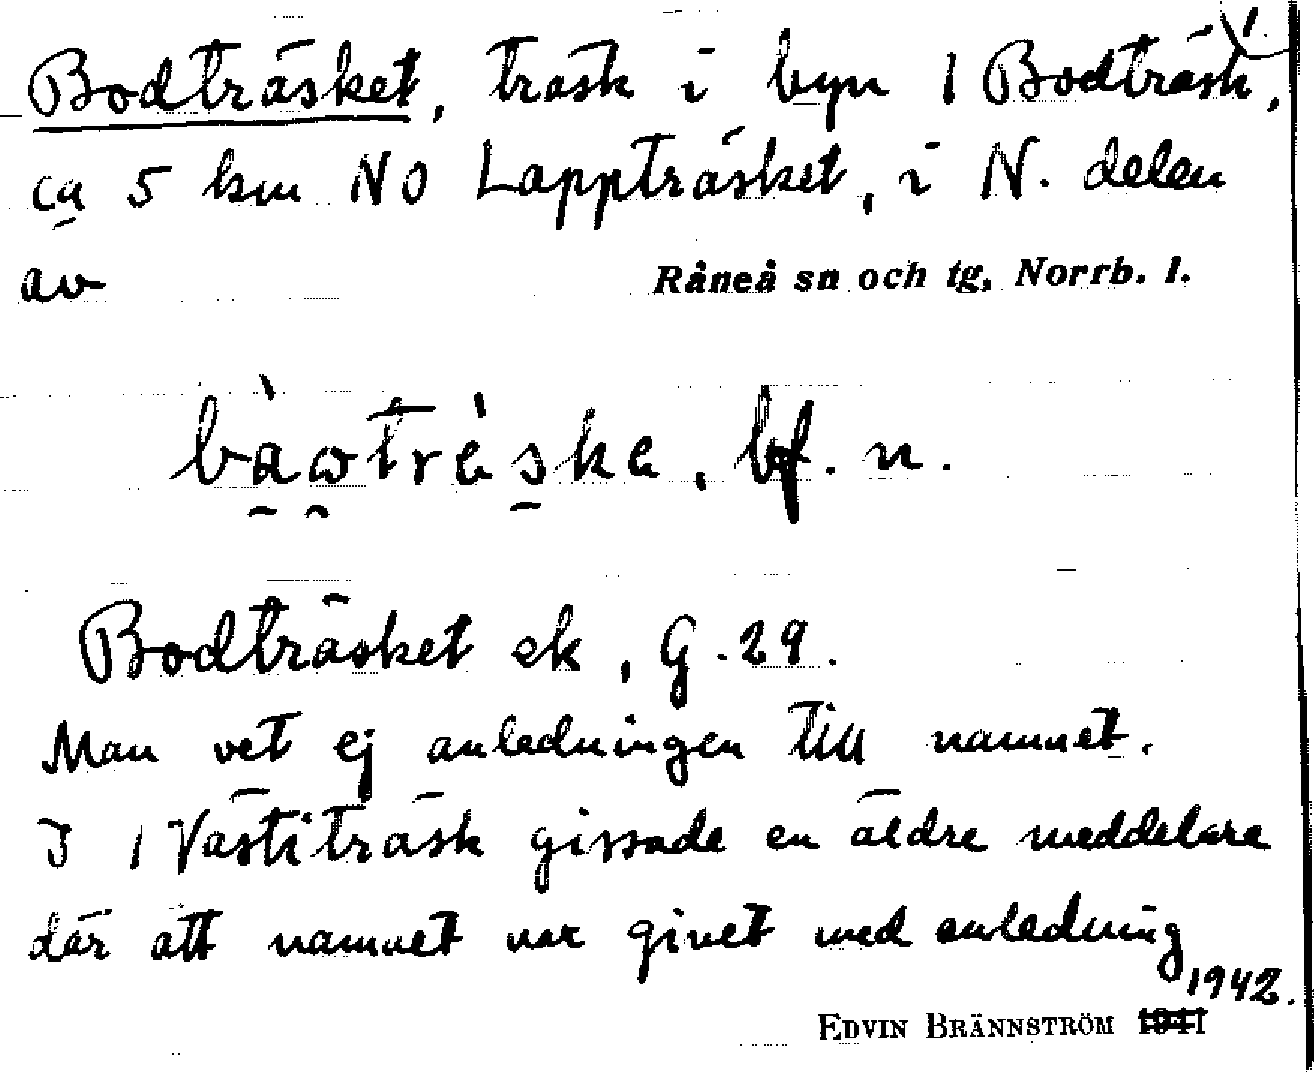 Bodträsket, träsk i byn / Bodträsk,
ca 5 km NO Lappträsket, i N. delen
av Råneå sn och tg, Norrb. l.
bàωtrèske, bf. n.
Bodträsket ek, G. 29.
Man vet ej anledningen till namnet.
I / Västiträsk gissade en äldre meddelare
där att namnet var givet med anledning
1942.
EDVIN BRÄNNSTRÖM 1941